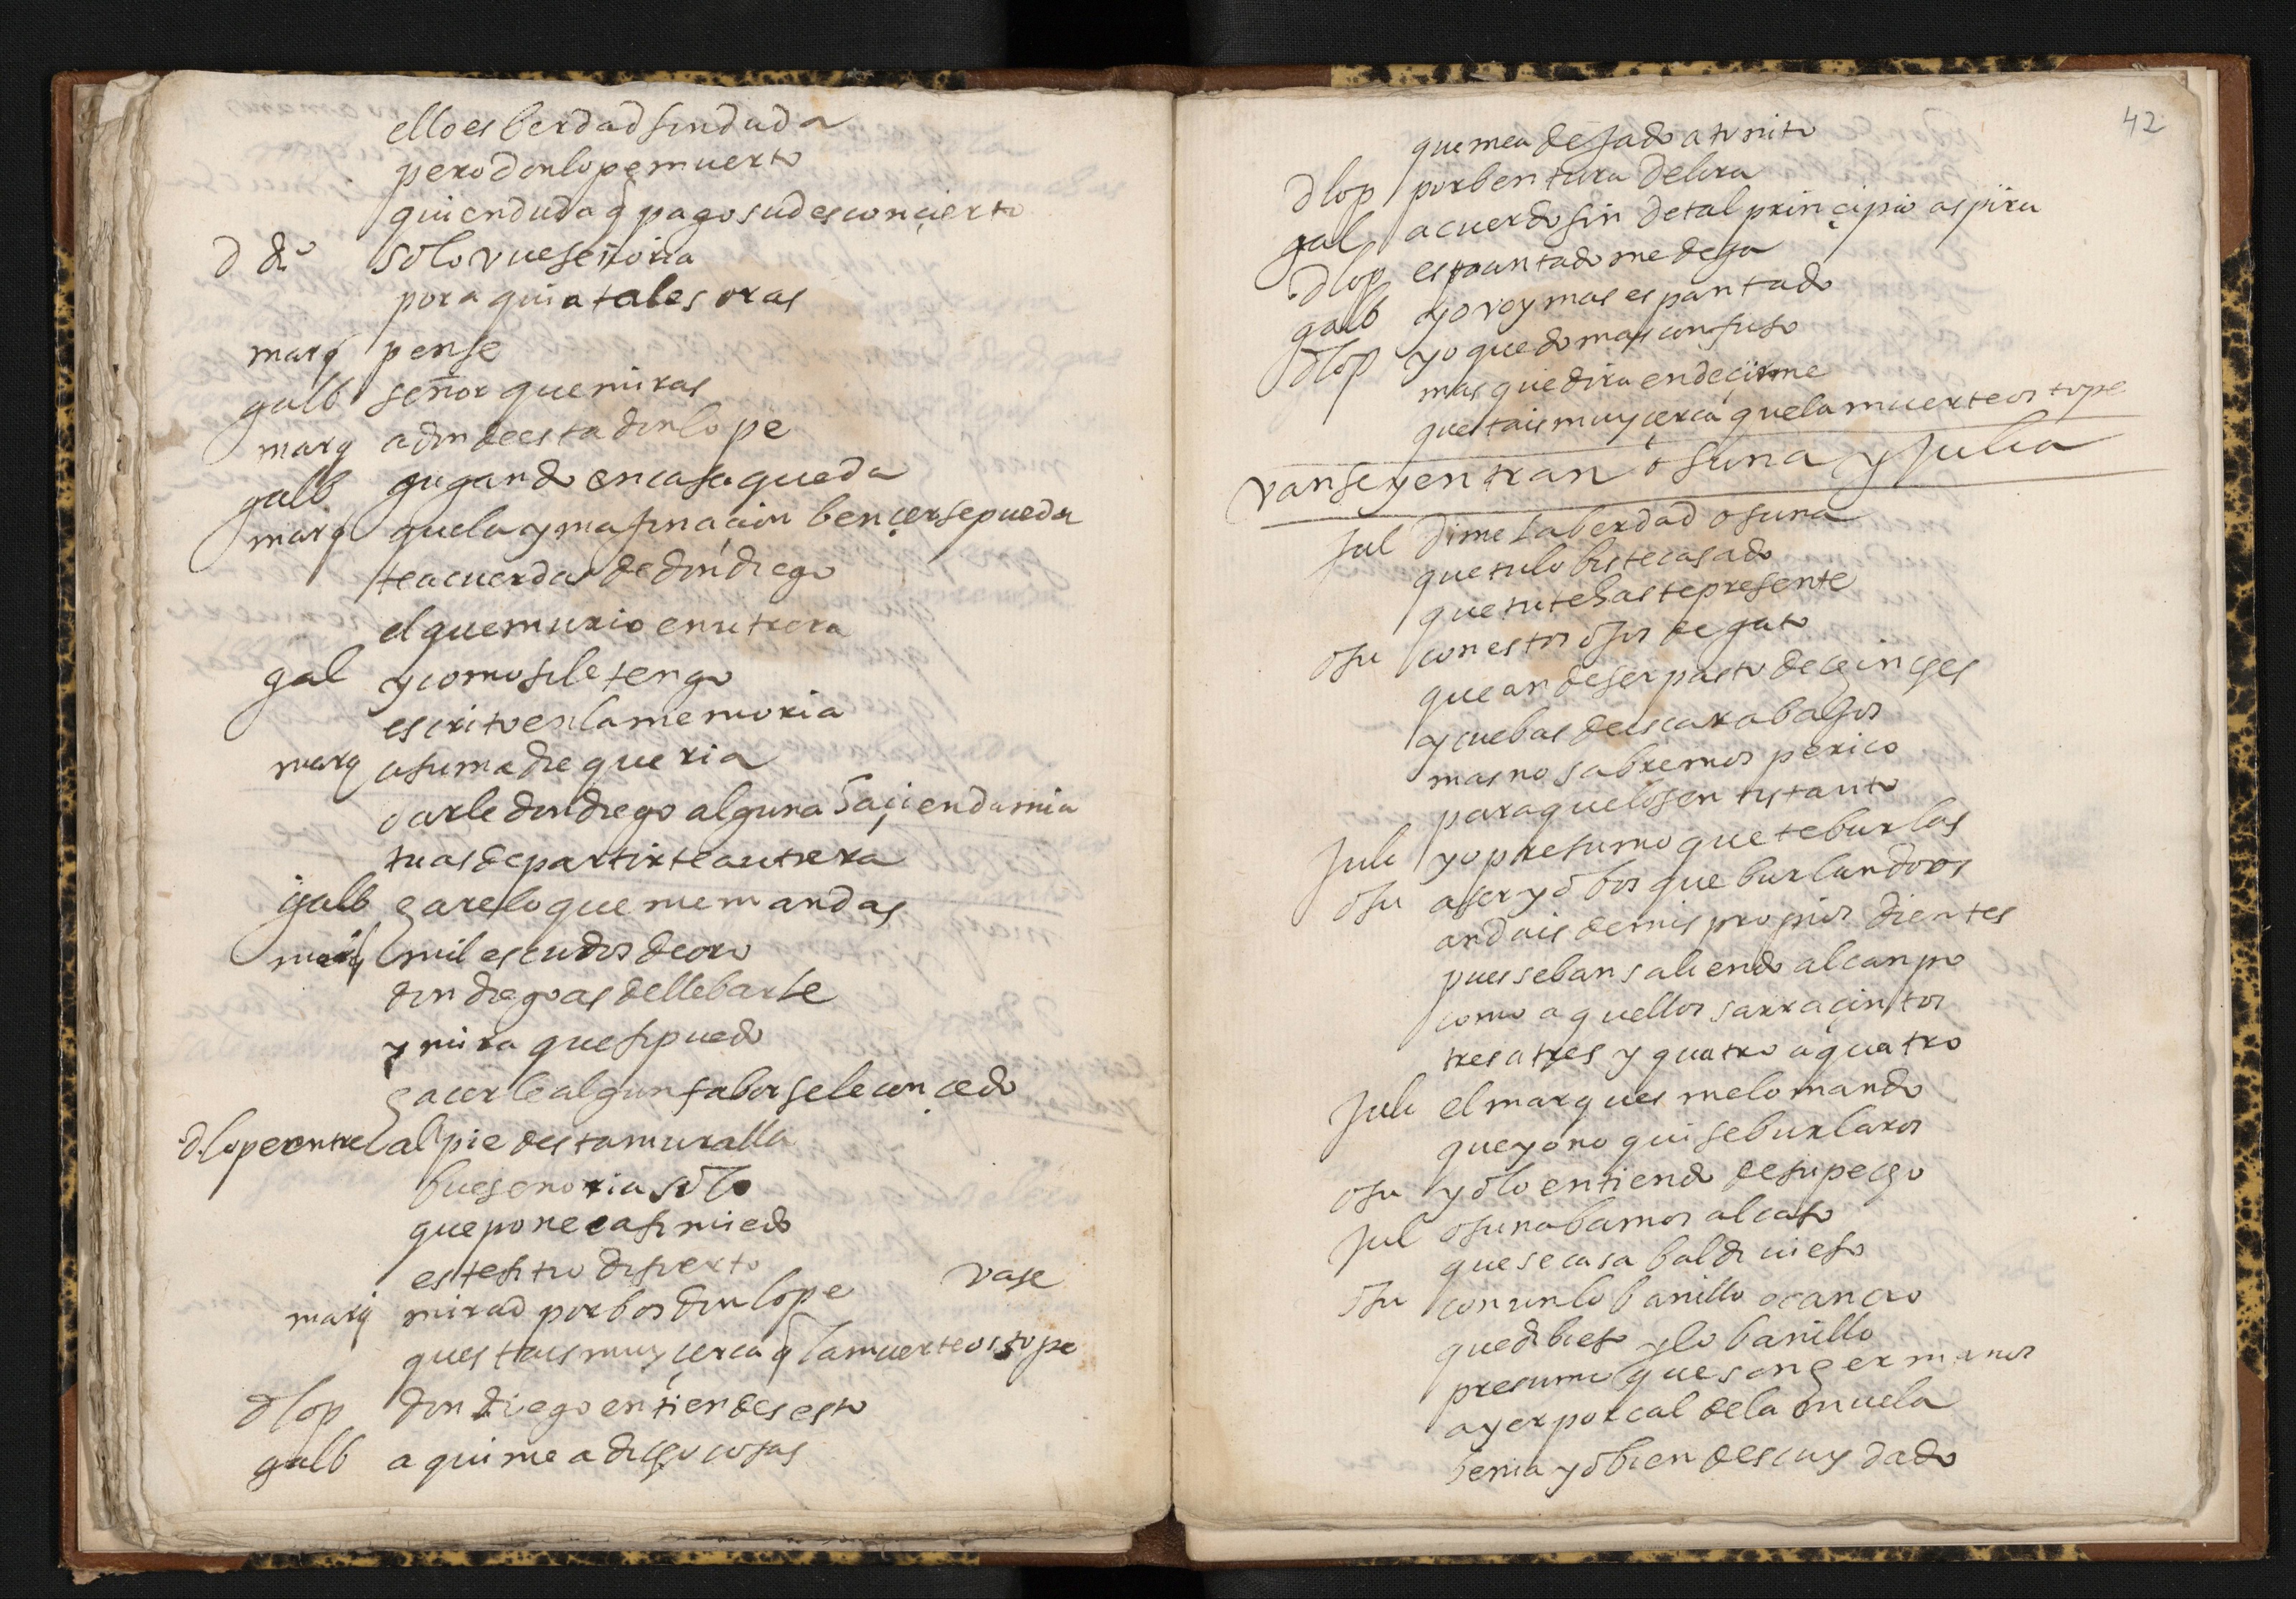 ello es berdad sin duda
pero don lope muerto
quien duda q̃ pago su desconçierto
d di° solo vueseñoria
por aqui a tales oras
marq pense
galb señor que miras
marq adonde esta don lope
galb gugando en casa queda
marq que la ymaginaçion bençerse pueda
te acuerdas de don diego
el que murio en utrera
gal y como si le tengo
escrito en la memoria
marq a su madre queria
darle don diego alguna haçienda mia
tu as de partirte a utrera
galb hare lo que me mandas
marq mil escudos de oro
don diego as de llebarle
y mira que si puedo
hacerle algun fabor se le conçedo
d. lope entre al pie desta muralla
buesenoria solo
que pone casi miedo
este sitio disierto
marq mirad por bos don lope vase
questais muy çerca q̃ la muerte os tope
d lop don diego entiendes esto
galb aqui me a dicho cosas
42
que mea dejado atonito
d lop por bentura delira
gal acuerdo sin de tal prinçipio aspira
d lop espantado me deja
galb yo voy mas espantado
d lop yo quedo mas confuso
mas que dira en deçirme
questais muy çerca que la muerte os tope
vanse y entran osuna y Julia
Jul dime la berdad osuna
que tu lo biste casado
que tu te haste presente
osu con estos ojos de gato
que an de ser pasto de chinches
y cuebas de escarabajos
mas no sabremos perico
para que los en tu tanto
Juli yo presumo que te burlas
osu a ser yo bos que burlandoos
andais de mis propios dientes
pues se ban saliendo al canpo
como aquellos sarraçintos
tres a tres y quatro a quatro
Juli el marques me lo mando
que yo no quise burlaros
osu yo lo entiendo de su pecho
Jul osuna bamos al caso
que se casa baldiuieso
osu con un lobanillo o cancro
que dibieso y lobanillo
presumo que son hermanos
ayer por cal de la muela
benia yo bien descuydado